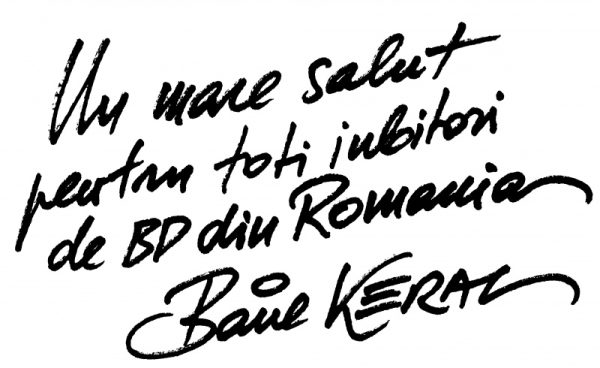 Un mare salut
pentru toti iubitori
de BD din Romania
Bane KERAC